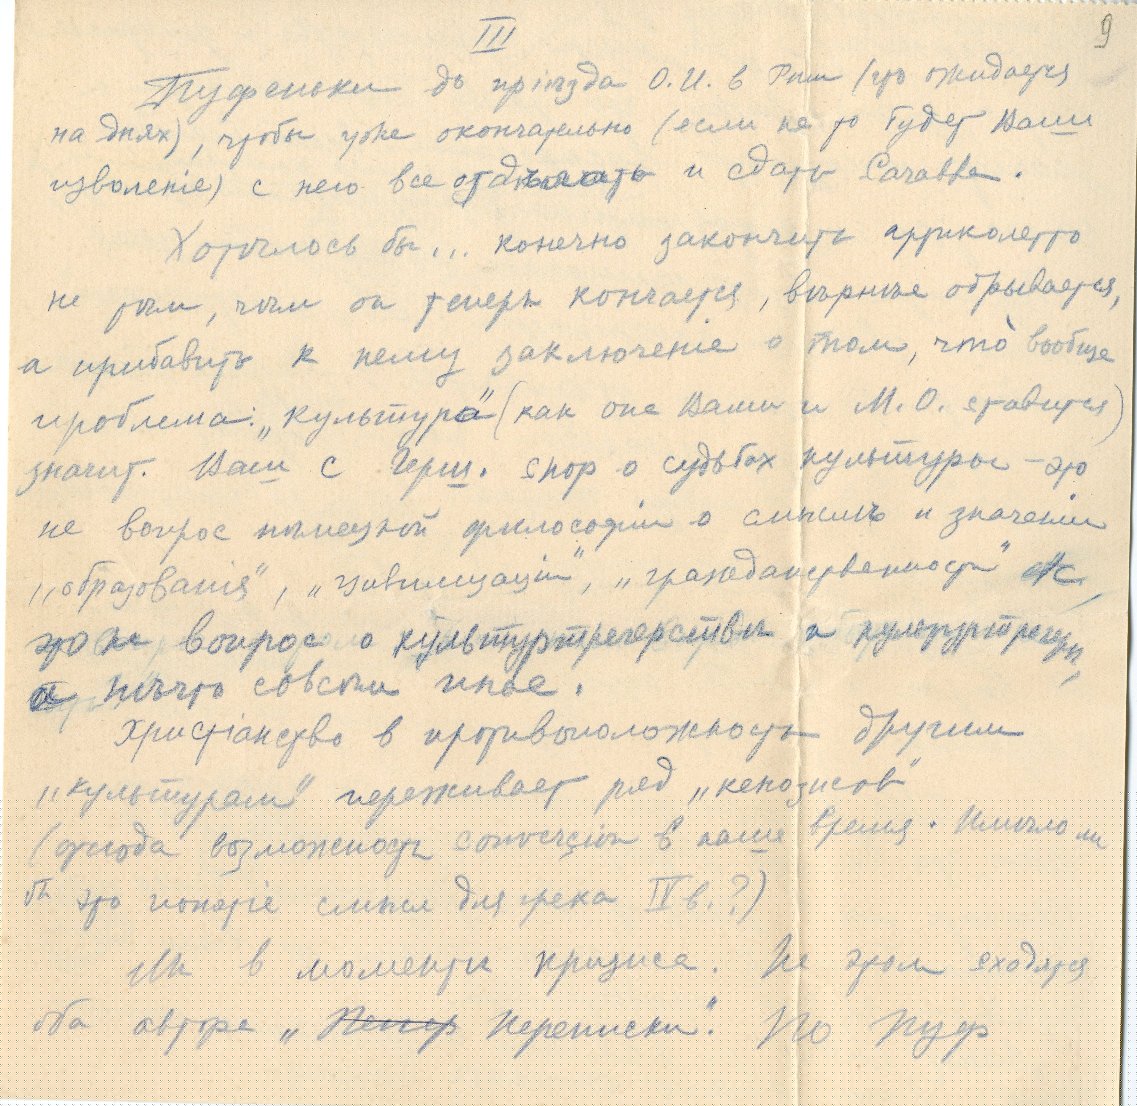 III
9
до пріѣзда О.И. в Рим (его ожидается
на днях), чтобы уже окончательно (если на то будет Ваше
изволеніе) с него все и сдать
Хотѣлось бы... конечно закончить артиколетто
не тѣм, чѣм он теперь кончается, вѣрнѣе обрывается,
а прибавить к нему заключеніе о том, что̀ вообще
проблема: „культура" (как она Вами и М.О. ставится)
значит. Ваш с Герш. спор о судьбах культуры – это
не вопрос нѣмецкой философіи о смыслѣ и значеніи
„образованія", „цивилизаціи", „гражданственности"
это не вопрос о культуртрегерствѣ и
а нѣчто совсѣм иное.
Христіанство в противоположность другим
„культурам" переживает ряд „кенозисов"
(откуда возможность в наше время. Имѣло ли
бы это понятіе смысл для грека IV в.?)
Мы в моменты кризиса. На этом сходятся
оба автора „Переписки". Но